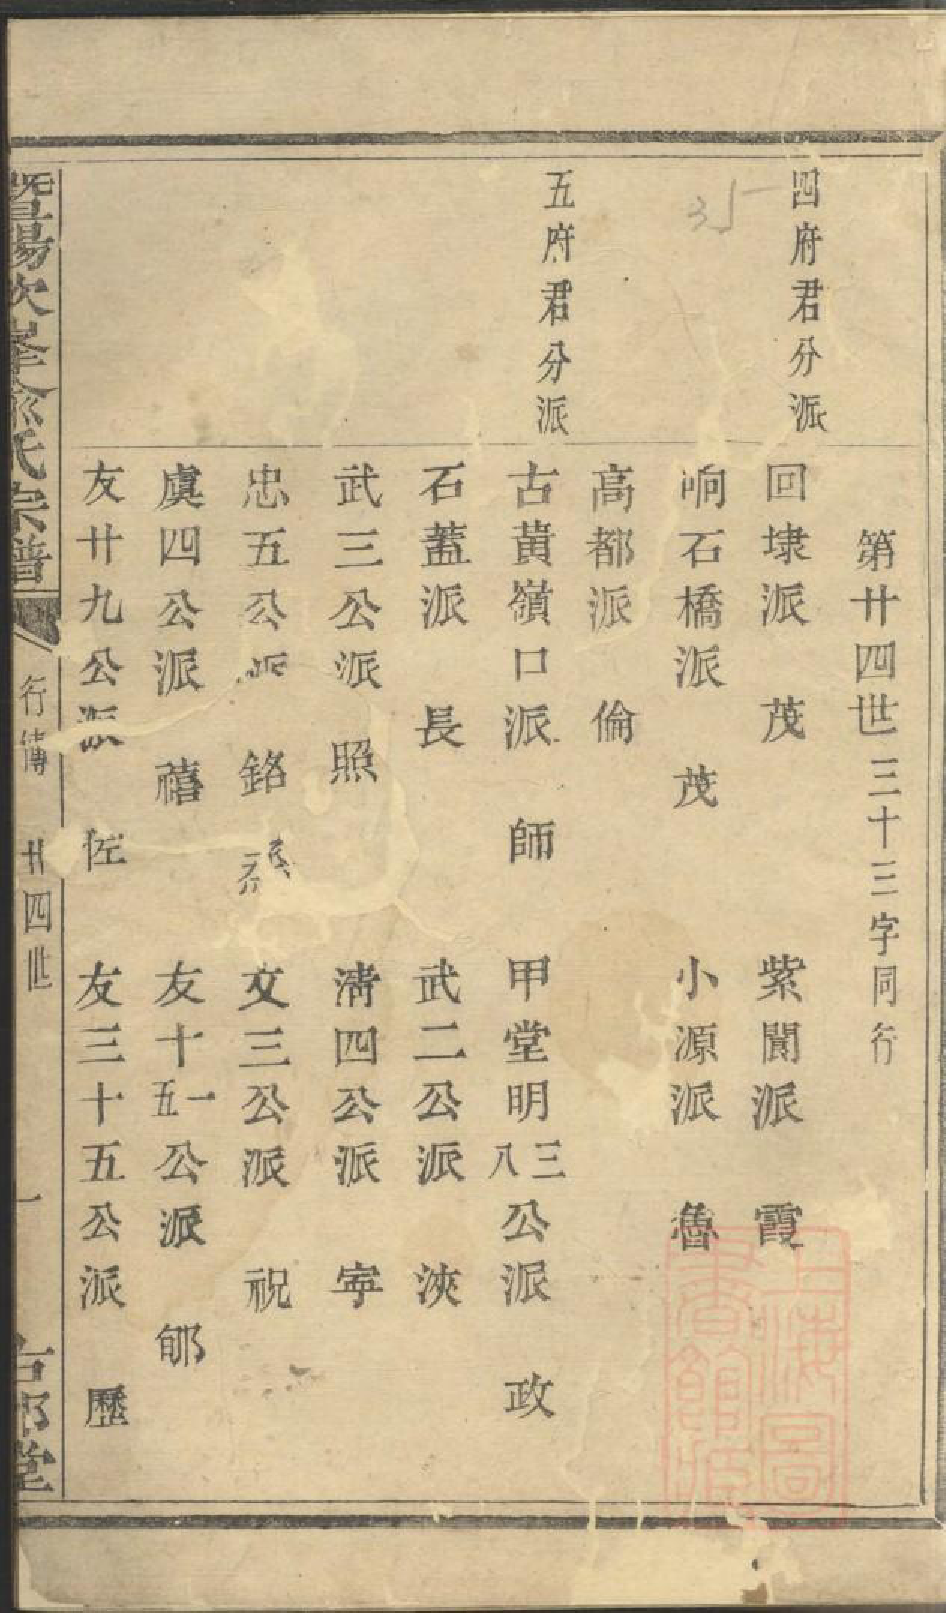 第廿四世三十三字同行
四府君分派
回埭派　茂　紫閬派　霞
响石橋派　茂　小源派　魯
高都派　倫
五府君分派
古黃嶺口派　師　甲堂明三八公派　政
石蓋派　長　武二公派　浹
武三公派　照　清四公派　寧
忠五公派　銘　文三公派　祝
虞四公派　禧　友十一五公派　郇
友廿九公派　佐　友三十五公派　歷
暨陽次峯俞氏宗譜　行傳　廿四世　一　堂
上海圖書館藏